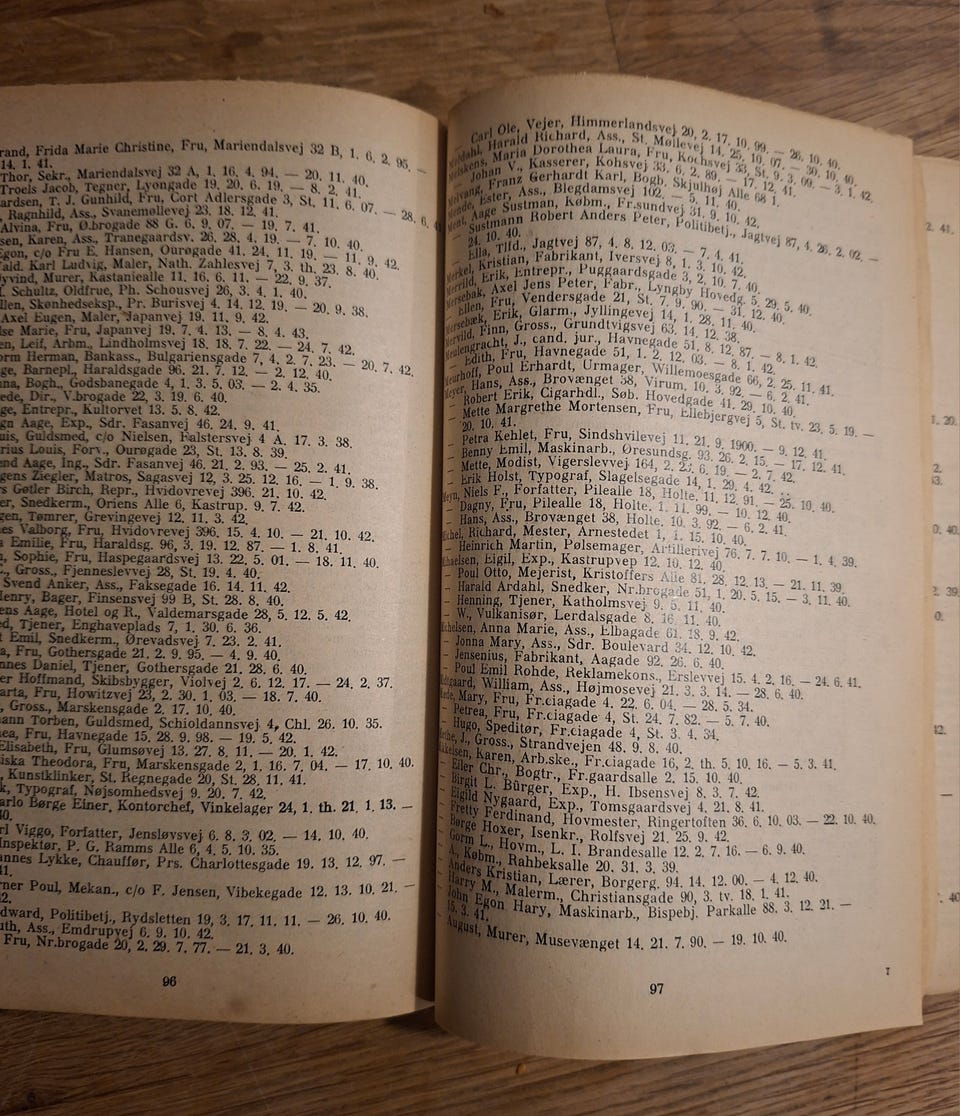 rand, Frida Marie Christine, Fru, Mariendalsvej 32 B, 1. 6. 2. 95. —
14. 1. 41.
Thor, Sekr., Mariendalsvej 32 A, 1. 16. 4. 94. — 20. 11. 40.
Troels Jacob, Tegner, Lyongade 19. 20. 6. 19. — 8. 2. 41.
ardsen, T. J. Gunhild, Fru, Cort Adlersgade 3, St. 11. 6. 07. — 28. 6. 4
Ragnhild, Ass., Svanemøllevej 23. 18. 12. 41.
Alvina, Fru, Ø.brogade 88 G. 6. 9. 07. — 19. 7. 41.
sen, Karen, Ass., Tranegaardsv. 26. 28. 4. 19. — 7. 10. 40.
Egon, c/o Fru E. Hansen, Ourøgade 41. 24. 11. 19. — 11. 9. 42.
ald. Karl Ludvig, Maler, Nath. Zahlesvej 7, 3. th. 23. 8. 40.
yvind, Murer, Kastaniealle 11. 16. 6. 11. — 22. 9. 37.
f. Schultz, Oldfrue, Ph. Schousvej 26, 3. 4. 1. 40.
llen, Skønhedseksp., Pr. Burisvej 4. 14. 12. 19. — 20. 9. 38.
Axel Eugen, Maler, Japanvej 19. 11. 9. 42.
lse Marie, Fru, Japanvej 19. 7. 4. 13. — 8. 4. 43.
en, Leif, Arbm., Lindholmsvej 18. 18. 7. 22. — 24. 7. 42.
orm Herman, Bankass., Bulgariensgade 7, 4. 2. 7. 23. — 20. 7. 42.
ge, Barnepl., Haraldsgade 96. 21. 7. 12. — 2. 12. 40.
na, Bogh., Godsbanegade 4, 1. 3. 5. 03. — 2. 4. 35.
ede, Dir., V.brogade 22, 3. 19. 6. 40.
ge, Entrepr., Kultorvet 13. 5. 8. 42.
gn Aage, Exp., Sdr. Fasanvej 46. 24. 9. 41.
uis, Guldsmed, c/o Nielsen, Falstersvej 4 A. 17. 3. 38.
rius Louis, Forv., Ourøgade 23, St. 13. 8. 39.
end Aage, Ing., Sdr. Fasanvej 46. 21. 2. 93. — 25. 2. 41.
gens Ziegler, Matros, Sagasvej 12, 3. 25. 12. 16. — 1. 9. 38.
s Gøtler Birch, Repr., Hvidovrevej 396. 21. 10. 42.
er, Snedkerm., Oriens Alle 6, Kastrup. 9. 7. 42.
gen, Tømrer, Grevingevej 12. 11. 3. 42.
es Valborg, Fru, Hvidovrevej 396. 15. 4. 10. — 21. 10. 42.
a Emilie, Fru, Haraldsg. 96, 3. 19. 12. 87. — 1. 8. 41.
, Sophie, Fru, Haspegaardsvej 13. 22. 5. 01. — 18. 11. 40.
., Gross., Fjenneslevvej 28, St. 19. 4. 40.
Svend Anker, Ass., Faksegade 16. 14. 11. 42.
Henry, Bager, Finsensvej 99 B, St. 28. 8. 40.
ens Aage, Hotel og R., Valdemarsgade 28, 5. 12. 5. 42.
ed, Tjener, Enghaveplads 7, 1. 30. 6. 36.
t Emil, Snedkerm., Ørevadsvej 7. 23. 2. 41.
a, Fru, Gothersgade 21. 2. 9. 95. — 4. 9. 40.
nnes Daniel, Tjener, Gothersgade 21. 28. 6. 40.
er Hoffmand, Skibsbygger, Violvej 2. 6. 12. 17. — 24. 2. 37.
arta, Fru, Howitzvej 23, 2. 30. 1. 03. — 18. 7. 40.
, Gross., Marskensgade 2. 17. 10. 40.
ann Torben, Guldsmed, Schioldannsvej 4, Chl. 26. 10. 35.
ea, Fru, Havnegade 15. 28. 9. 98. — 19. 5. 42.
Elisabeth, Fru, Glumsøvej 13. 27. 8. 11. — 20. 1. 42.
iska Theodora, Fru, Marskensgade 2, 1. 16. 7. 04. — 17. 10. 40.
, Kunstklinker, St. Regnegade 20, St. 28. 11. 41.
k, Typograf, Nøjsomhedsvej 9. 20. 7. 42.
arlo Børge Einer, Kontorchef, Vinkelager 24, 1. th. 21. 1. 13. —
40.
rl Viggo, Forfatter, Jensløvsvej 6. 8. 3. 02. — 14. 10. 40.
Inspektør, P. G. Ramms Alle 6, 4. 5. 10. 35.
annes Lykke, Chauffør, Prs. Charlottesgade 19. 13. 12. 97. —
41.
rner Poul, Mekan., c/o F. Jensen, Vibekegade 12. 13. 10. 21. —
42.
dward, Politibetj., Rydsletten 19, 3. 17. 11. 11. — 26. 10. 40.
uth, Ass., Emdrupvej 6. 9. 10. 42.
Fru, Nr.brogade 20, 2. 29. 7. 77. — 21. 3. 40.
96
Carl Ole, Vejer, Himmerlandsvej 20, 2. 17. 10. 99. — 26. 10. 40.
Harald Richard, Ass., St. Møllevej 14, 25. 10. 07. — 30. 10. 40.
Maria Dorothea Laura, Fru, Kochsvej 33, St. 9. 3. 09. — 3. 1. 42.
Johan V., Kasserer, Kohsvej 33. 6. 2. 89. — 17. 12. 41.
Franz Gerhardt Karl, Bogb. Skjulhøj Alle 68 1.
Ester, Ass., Blegdamsvej 102. — 5. 11. 40.
Aage Sustman, Købm., Fr.sundvej 31. 9. 10. 42.
Sustmann Robert Anders Peter, Politibetj., Jagtvej 87, 4. 26. 2. 02. —
24. 10. 40.
Ella, Tlfd., Jagtvej 87, 4. 8. 12. 03. — 7. 4. 41.
Merkel, Kristian, Fabrikant, Iversvej 8, 1. 3. 10. 42.
Merrild, Erik, Entrepr., Puggaardsgade 3, 2. 10. 7. 40.
Mersebak, Axel Jens Peter, Fabr., Lyngby Hovedg. 5. 29. 5. 40.
— Ellen, Fru, Vendersgade 21, St. 7. 9. 90. — 31. 12. 40.
Mersebæk, Erik, Glarm., Jyllingevej 14, 1. 28. 11. 40.
Mervild, Finn, Gross., Grundtvigsvej 63. 14. 12. 38.
Meulengracht, J., cand. jur., Havnegade 51, 8. 12. 87. — 8. 1. 42.
— Edith, Fru, Havnegade 51, 1. 2. 12. 03. — 8. 1. 42.
Meurhoff, Poul Erhardt, Urmager, Willemoesgade 66, 2. 25. 11. 41.
Meyer, Hans, Ass., Brovænget 38, Virum. 10. 3. 92. — 6. 2. 41.
— Robert Erik, Cigarhdl., Søb. Hovedgade 41. 29. 10. 40.
— Mette Margrethe Mortensen, Fru, Ellebjergvej 5, St. tv. 23. 5. 19. —
20. 10. 41.
— Petra Kehlet, Fru, Sindshvilevej 11. 21. 9. 1900. — 9. 12. 41.
— Benny Emil, Maskinarb., Øresundsg. 93. 26. 2. 15. — 17. 12. 41.
— Mette, Modist, Vigerslevvej 164, 2. 23. 6. 19. — 2. 7. 42.
— Erik Holst, Typograf, Slagelsegade 14, 1. 29. 4. 42.
Meyn, Niels F., Forfatter, Pilealle 18, Holte. 11. 12. 91 — 25. 10. 40.
— Dagny, Fru, Pilealle 18, Holte. 1. 11. 99. — 10. 12. 40.
— Hans, Ass., Brovænget 38, Holte. 10. 3. 92. — 6. 2. 41.
Michel, Richard, Mester, Arnestedet 1, 1. 15. 10. 40.
— Heinrich Martin, Pølsemager, Artillerivej 76. 7. 7. 10. — 1. 4. 39.
Michaelsen, Eigil, Exp., Kastrupvej 12. 10. 12. 40.
— Poul Otto, Mejerist, Kristoffers Alle 81. 28. 12. 13. — 21. 11. 39.
— Harald Ardahl, Snedker, Nr.brogade 51, 1. 20. 5. 15. — 3. 11. 40.
— Henning, Tjener, Katholmsvej 9. 5. 11. 40.
— W., Vulkanisør, Lerdalsgade 8. 16. 11. 40.
Michelsen, Anna Marie, Ass., Elbagade 61. 18. 9. 42.
— Jonna Mary, Ass., Sdr. Boulevard 34. 12. 10. 42.
— Jensenius, Fabrikant, Aagade 92. 26. 6. 40.
— Poul Emil Rohde, Reklamekons., Erslevvej 15. 4. 2. 16. — 24. 6. 41.
William, Ass., Højmosevej 21. 3. 3. 14. — 28. 6. 40.
Mary, Fru, Fr.ciagade 4, 22. 6. 04. — 28. 5. 34.
— Petrea, Fru, Fr.ciagade 4, St. 24. 7. 82. — 5. 7. 40.
— Hugo, Speditør, Fr.ciagade 4, St. 3. 4. 34.
J., Gross., Strandvejen 48. 9. 8. 40.
Mikkelsen, Karen, Arb.ske., Fr.ciagade 16, 2. th. 5. 10. 16. — 5. 3. 41.
— Eiler Chr., Bogtr., Fr.gaardsalle 2. 15. 10. 40.
— Birgit L. Bürger, Exp., H. Ibsensvej 8. 3. 7. 42.
— Eigild Nygaard, Exp., Tomsgaardsvej 4. 21. 8. 41.
— Pretty Ferdinand, Hovmester, Ringertoften 36. 6. 10. 03. — 22. 10. 40.
— Børge Hoxer, Isenkr., Rolfsvej 21. 25. 9. 42.
— Gorm L., Hovm., L. I. Brandesalle 12. 2. 7. 16. — 6. 9. 40.
— A., Købm., Rahbeksalle 20. 31. 3. 39.
— Anders Kristian, Lærer, Borgerg. 94. 14. 12. 00. — 4. 12. 40.
— Harry M., Malerm., Christiansgade 90, 3. tv. 18. 1. 41.
— John Egon Hary, Maskinarb., Bispebj. Parkalle 88. 3. 12. 21. —
15. 3. 41.
— August, Murer, Musevænget 14. 21. 7. 90. — 19. 10. 40.
7
97
2. 41.
1. 20.
2.
0. 40.
2. 39.
0.
12.
—
40